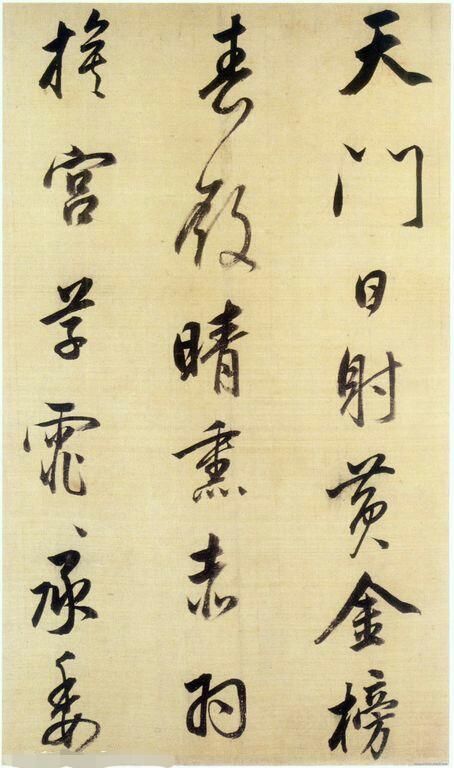 天門日射黃金榜
春殿晴熏赤羽
旗宮草霏〻承委